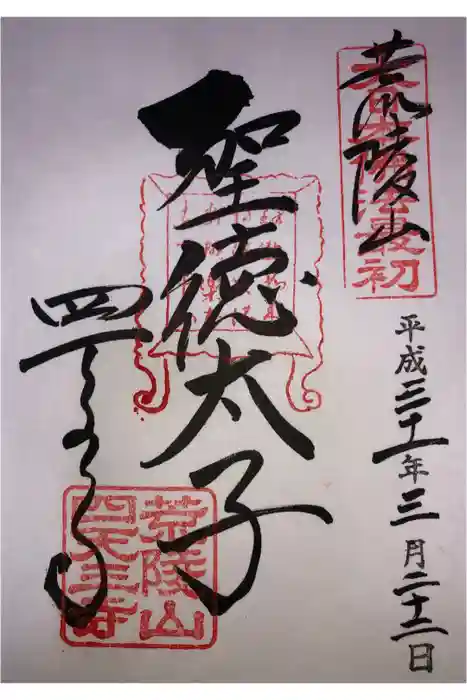 荒陵山
大日本佛法最初
平成三十一年三月二十二日
聖徳太子
四天王寺
荒陵山
四天王寺